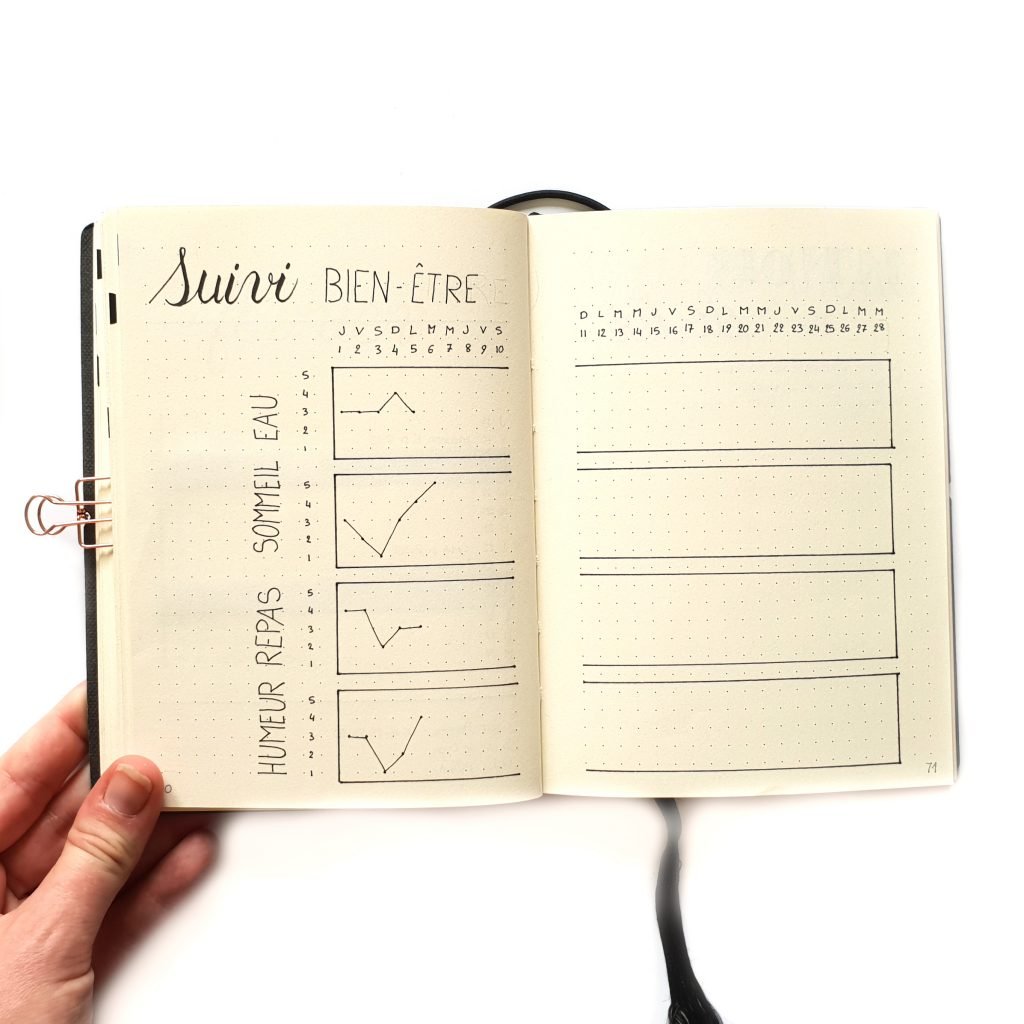 Suivi BIEN-ÊTRE
J V S D L M M J V S
1 2 3 4 5 6 7 8 9 10
EAU
5
4
3
2
1
SOMMEIL
5
4
3
2
1
REPAS
5
4
3
2
1
HUMEUR
5
4
3
2
1
D L M M J V S D L M M J V S D L M M
11 12 13 14 15 16 17 18 19 20 21 22 23 24 25 26 27 28
71